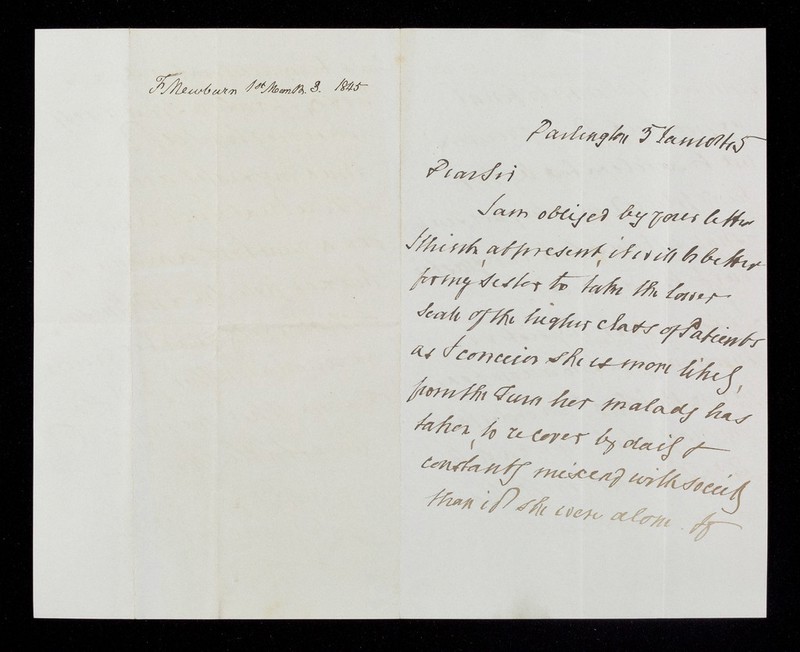 F Mewburn 1st Month. 3. 1845
Darlington 3 Jany 1845
Dear Sir
I am obliged by your letter
I think, at present, it will be better
for my sister to take the lower
Scale of the higher class of Patients
as I conceive she is more likely,
from the Turn her malady has
taken, to recover by daily &
constantly mixing with society
than if she were alone. If